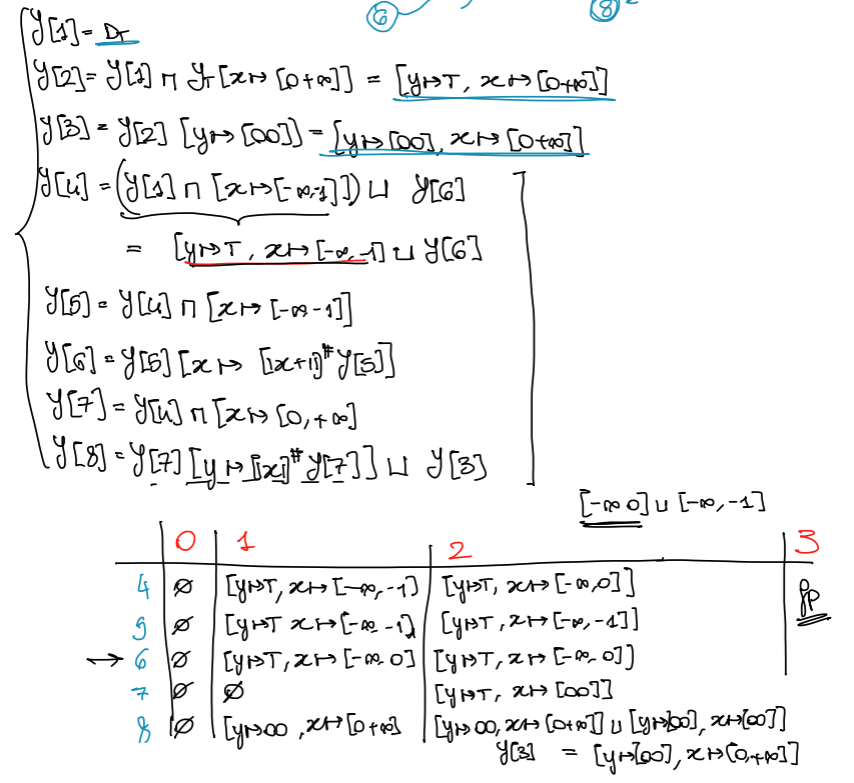 6 8 2
Y[1] = D_T
Y[2] = Y[1] ⊓ Y_T[x ↦ [0 +∞]] = [y ↦ T, x ↦ [0 +∞]]
Y[3] = Y[2] [y ↦ [00]] = [y ↦ [00], x ↦ [0 +∞]]
Y[4] = (Y[1] ⊓ [x ↦ [-∞,-1]]) ⊔ Y[6]
= [y ↦ T, x ↦ [-∞,-1] ⊔ Y[6]
Y[5] = Y[4] ⊓ [x ↦ [-∞ -1]]
Y[6] = Y[5] [x ↦ [|x+1|]# Y[5]]
Y[7] = Y[4] ⊓ [x ↦ [0, +∞]
Y[8] = Y[7] [y ↦ [|x|]# Y[7]] ⊔ Y[3]
[-∞ 0] ∪ [-∞, -1]
0 1 2 3
4 ∅ [y ↦ T, x ↦ [-∞, -1] [y ↦ T, x ↦ [-∞,0]] fp
5 ∅ [y ↦ T x ↦ [-∞ -1] [y ↦ T, x ↦ [-∞, -1]]
→ 6 ∅ [y ↦ T, x ↦ [-∞ 0] [y ↦ T, x ↦ [-∞ 0])
7 ∅ ∅ [y ↦ T, x ↦ [00]]
8 ∅ [y ↦ 00, x ↦ [0 +∞] [y ↦ 00, x ↦ [0 +∞]] ∪ [y ↦ [00], x ↦ [00]]
Y[3] = [y ↦ [00], x ↦ [0, +∞]]